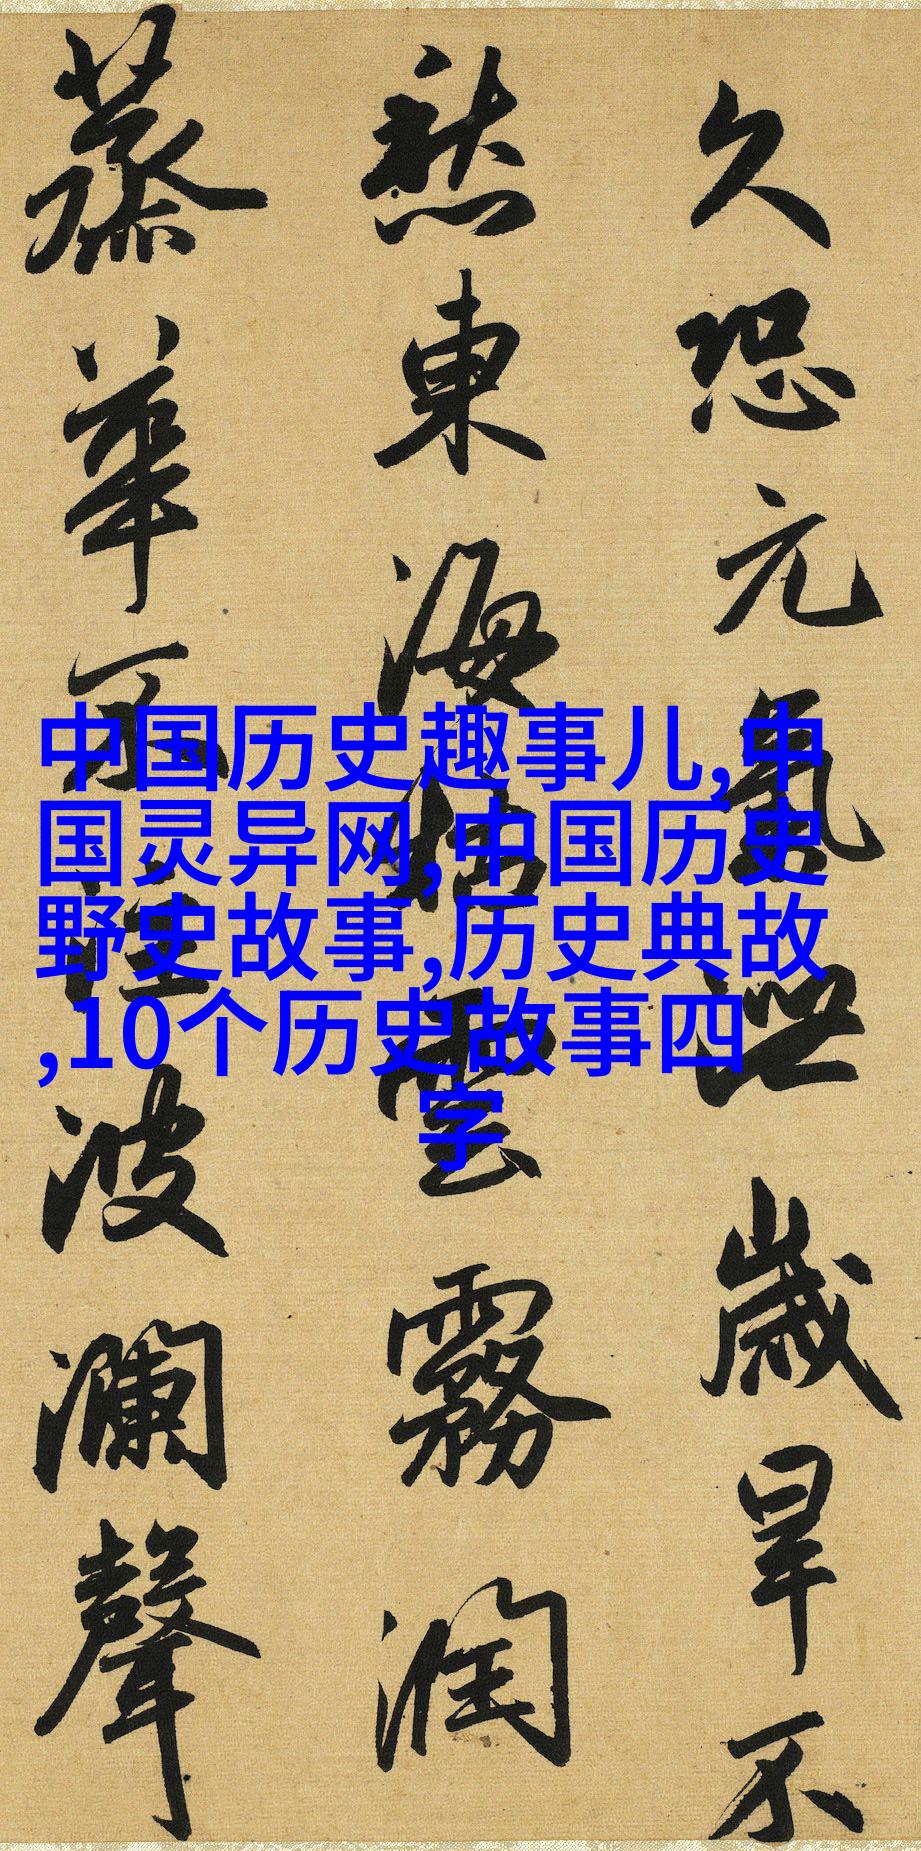 久恐元氣泄歲旱不
愁東海枯雲霧潤
蒸華不注波瀾聲
中国历史趣事儿,中
国灵异网,中国历史
野史故事,历史典故
,10个历史故事四
字